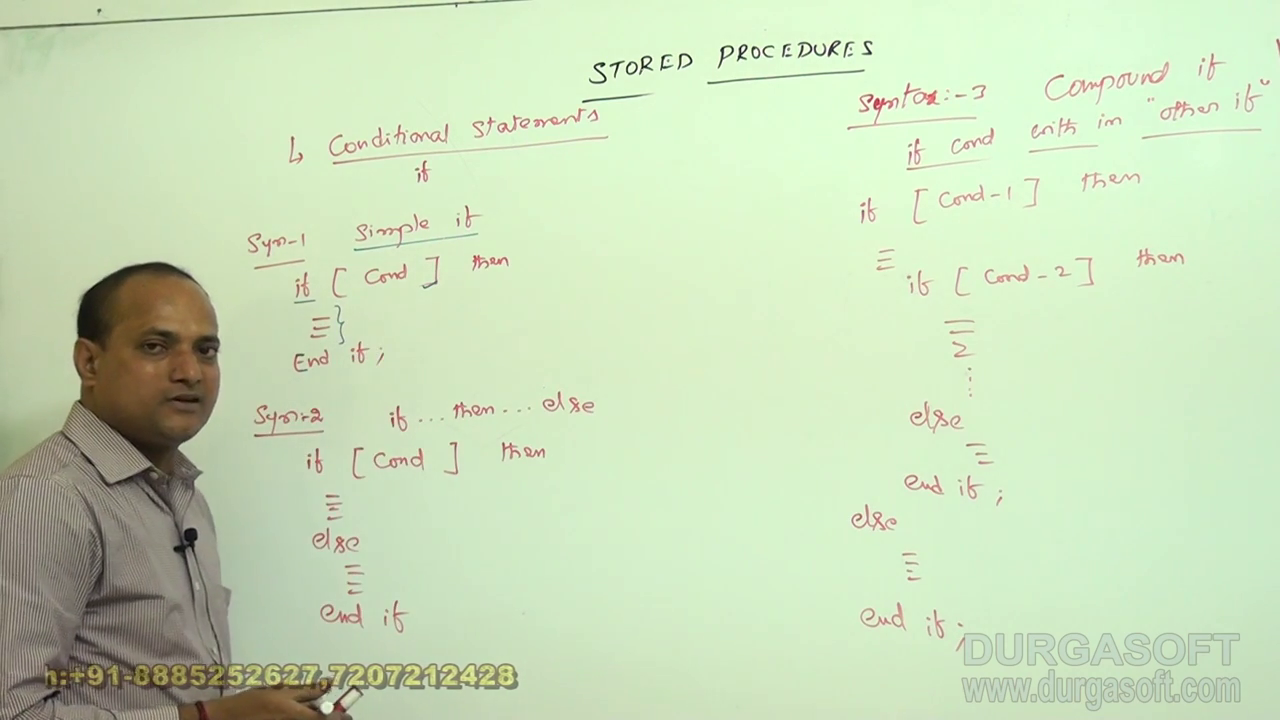 STORED PROCEDURES
↳ Conditional Statements
if
Syn-1 Simple if
if [ Cond ] then
End if ;
Syn:-2 if ... then ... else
if [ Cond ] then
else
end if
Syntax:-3 Compound if
if cond with in "other if"
if [ Cond-1 ] then
if [ Cond-2 ] then
else
end if ;
else
end if ;
h:+91-8885252627,7207212428
DURGASOFT
www.durgasoft.com